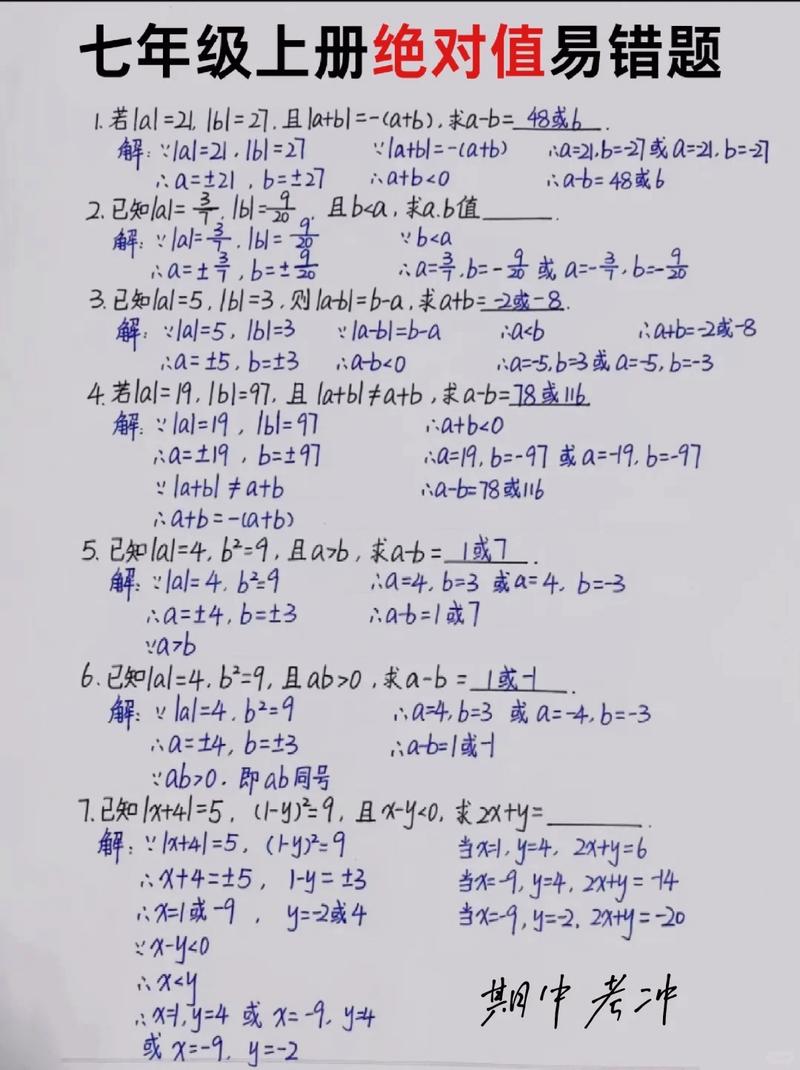 七年级上册绝对值易错题
1. 若|a|=21, |b|=27, 且|a+b|=-(a+b), 求a-b= 48或6 .
解: ∵|a|=21, |b|=27 ∵|a+b|=-(a+b) ∴a=21,b=-27或a=21,b=-27
∴a=±21, b=±27 ∴a+b<0 ∴a-b=48或6
2. 已知|a|=3/7, |b|=9/20, 且b<a, 求a.b值______.
解: ∵|a|=3/7, |b|=9/20 ∵b<a
∴a=±3/7, b=±9/20 ∴a=3/7, b=-9/20 或 a=-3/7, b=-9/20
3. 已知|a|=5, |b|=3, 则|a-b|=b-a, 求a+b= -2或-8 .
解: ∵|a|=5, |b|=3 ∵|a-b|=b-a ∴a<b ∴a+b=-2或-8
∴a=±5, b=±3 ∴a-b<0 ∴a=-5,b=3或a=-5,b=-3
4. 若|a|=19, |b|=97, 且 |a+b|≠a+b, 求a-b= 78或116
解: ∵|a|=19, |b|=97 ∴a+b<0
∴a=±19, b=±97 ∴a=19, b=-97 或a=-19, b=-97
∵|a+b|≠a+b ∴a-b=78或116
∴a+b=-(a+b)
5. 已知|a|=4, b²=9, 且a>b, 求a-b= 1或7 .
解: ∵|a|=4, b²=9 ∴a=4, b=3 或a=4, b=-3
∴a=±4, b=±3 ∴a-b=1或7
∵a>b
6. 已知|a|=4, b²=9, 且ab>0, 求a-b= 1或-1 .
解: ∵|a|=4, b²=9 ∴a=4, b=3 或 a=-4, b=-3
∴a=±4, b=±3 ∴a-b=1或-1
∵ab>0. 即ab同号
7. 已知|x+4|=5, (1-y)²=9, 且x-y<0, 求2x+y=______.
解: ∵|x+4|=5, (1-y)²=9 当x=1, y=4, 2x+y=6
∴x+4=±5, 1-y=±3 当x=-9, y=4, 2x+y=-14
∴x=1或-9, y=-2或4 当x=-9, y=-2, 2x+y=-20
∵x-y<0
∴x<y
∴x=1, y=4 或 x=-9, y=4
或 x=-9, y=-2
期中考冲